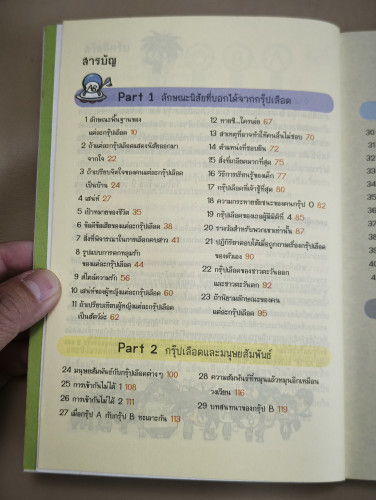 สารบัญ
Part 1 ลักษณะนิสัยที่บอกได้จากกรุ๊ปเลือด
1 ลักษณะพื้นฐานของ
แต่ละกรุ๊ปเลือด 10
2 ถ้าแต่ละกรุ๊ปเลือดแสดงนิสัยออกมา
จากใจ 22
3 ถ้าเปรียบจิตใจของคนแต่ละกรุ๊ปเลือด
เป็นบ้าน 24
4 เสน่ห์ 27
5 เป้าหมายของชีวิต 35
6 ข้อดีข้อเสียของแต่ละกรุ๊ปเลือด 38
7 สิ่งที่พิจารณาในการเลือกคบสาว 41
8 รูปแบบการตกหลุมรัก
ของแต่ละกรุ๊ปเลือด 44
9 สไตล์ความรัก 56
10 เสน่ห์ของผู้หญิงแต่ละกรุ๊ปเลือด 60
11 ถ้าเปรียบเทียบผู้หญิงแต่ละกรุ๊ปเลือด
เป็นสัตว์ล่ะ 62
12 ทายซิ...ใครเอ่ย 67
13 สาเหตุที่อาจทำให้คนอื่นไม่ชอบ 70
14 ตำแหน่งที่ชอบยืน 72
15 สิ่งที่เกลียดมากที่สุด 75
16 วิธีการเรียนรู้ของเด็ก 77
17 กรุ๊ปเลือดที่เจ้าชู้ที่สุด 80
18 ความกระหายชัยชนะของคนกรุ๊ป O 82
19 กรุ๊ปเลือดของทฤษฎีมิติที่ 4 85
20 รางวัลสำหรับพวกเขาเหล่านั้น 87
21 ปฏิกิริยาตอบโต้เมื่อถูกถามเรื่องกรุ๊ปเลือด
ของตัวเอง 90
22 กรุ๊ปเลือดของชาวตะวันออก
และชาวตะวันตก 92
23 ถ้านิยามลักษณะของคน
แต่ละกรุ๊ปเลือด 95
Part 2 กรุ๊ปเลือดและมนุษยสัมพันธ์
24 มนุษยสัมพันธ์กับกรุ๊ปเลือดต่างๆ 100
25 การเข้ากันไม่ได้ 1 108
26 การเข้ากันไม่ได้ 2 111
27 เมื่อกรุ๊ป A กับกรุ๊ป B ทะเลาะกัน 113
28 ความสัมพันธ์ที่หมุนแล้วหมุนอีกเหมือน
วงเวียน 116
29 บทสนทนาของกรุ๊ป B 119